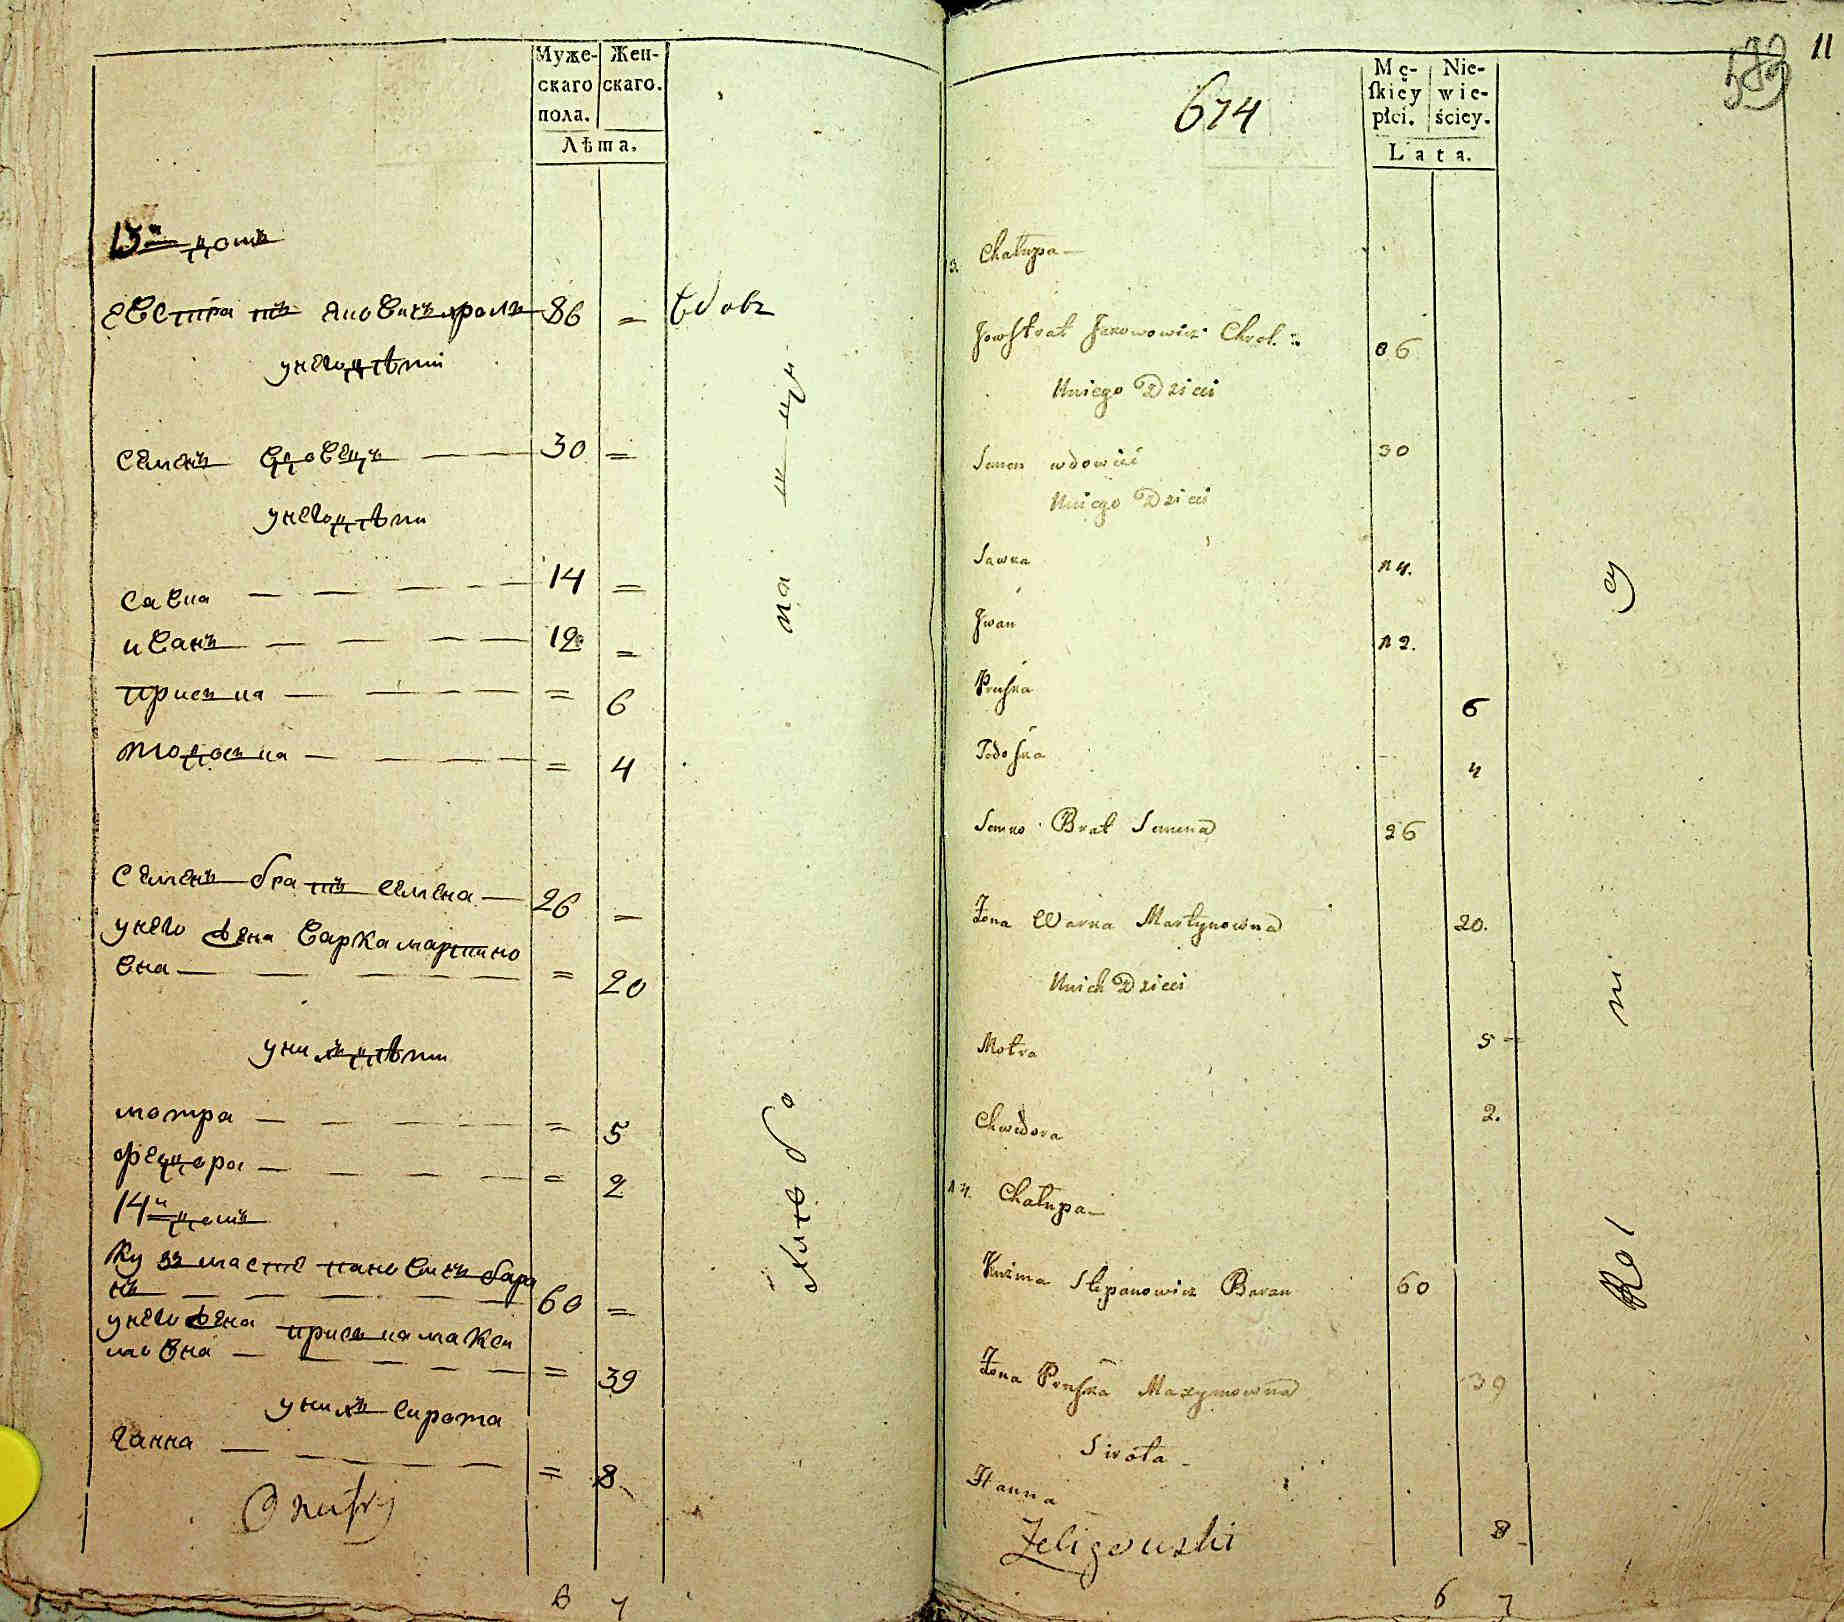 Муже-
скаго
пола.
Жен-
скаго.
Лѣта.
13й домъ
Евстратъ Яновичъ хролъ 86 = вдовъ
унего дѣти
Семенъ вдовецъ — 30 =
унего дѣти
Савка — 14 =
иванъ — 12 =
приська — = 6
тодоська — = 4
Семенъ братъ семена — 26 =
унего жена варка мартино
вна — = 20
унихъ дѣти
мотра — = 5
федора — = 2
14й домъ
Кузма степановичъ бара
нъ — 60 =
унего жена приська макси
мовна — = 39
унихъ сирота
ганна — = 8
6 7
хлѣбо
па ш ци
674
Mę-
ſkiéy
płci.
Nie-
wie-
ściey.
Lata.
11
13. Chałupa
Jowſtrat Janowowicz Chrol 86
Uniego Dzieci
Semen wdowiec 30
Uniego Dzieci
Sawka 14.
Jwan 12.
Pruſka 6
Todoſka 4
Semko Brat Semena 26
Żona Warka Martynowna 20.
Unich Dzieci
Motra 5
Chwedora 2.
14. Chałupa
Kuźma Stepanowicz Baran 60
Żona Pruſka Maxymowna 39
Sirota
Hanna 8
Żeligowski
6 7
Rol ni cy